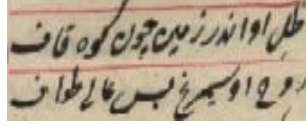 ظل او اندر زمین چون کوه قاف
روح او سیمرغ بس عالی طواف